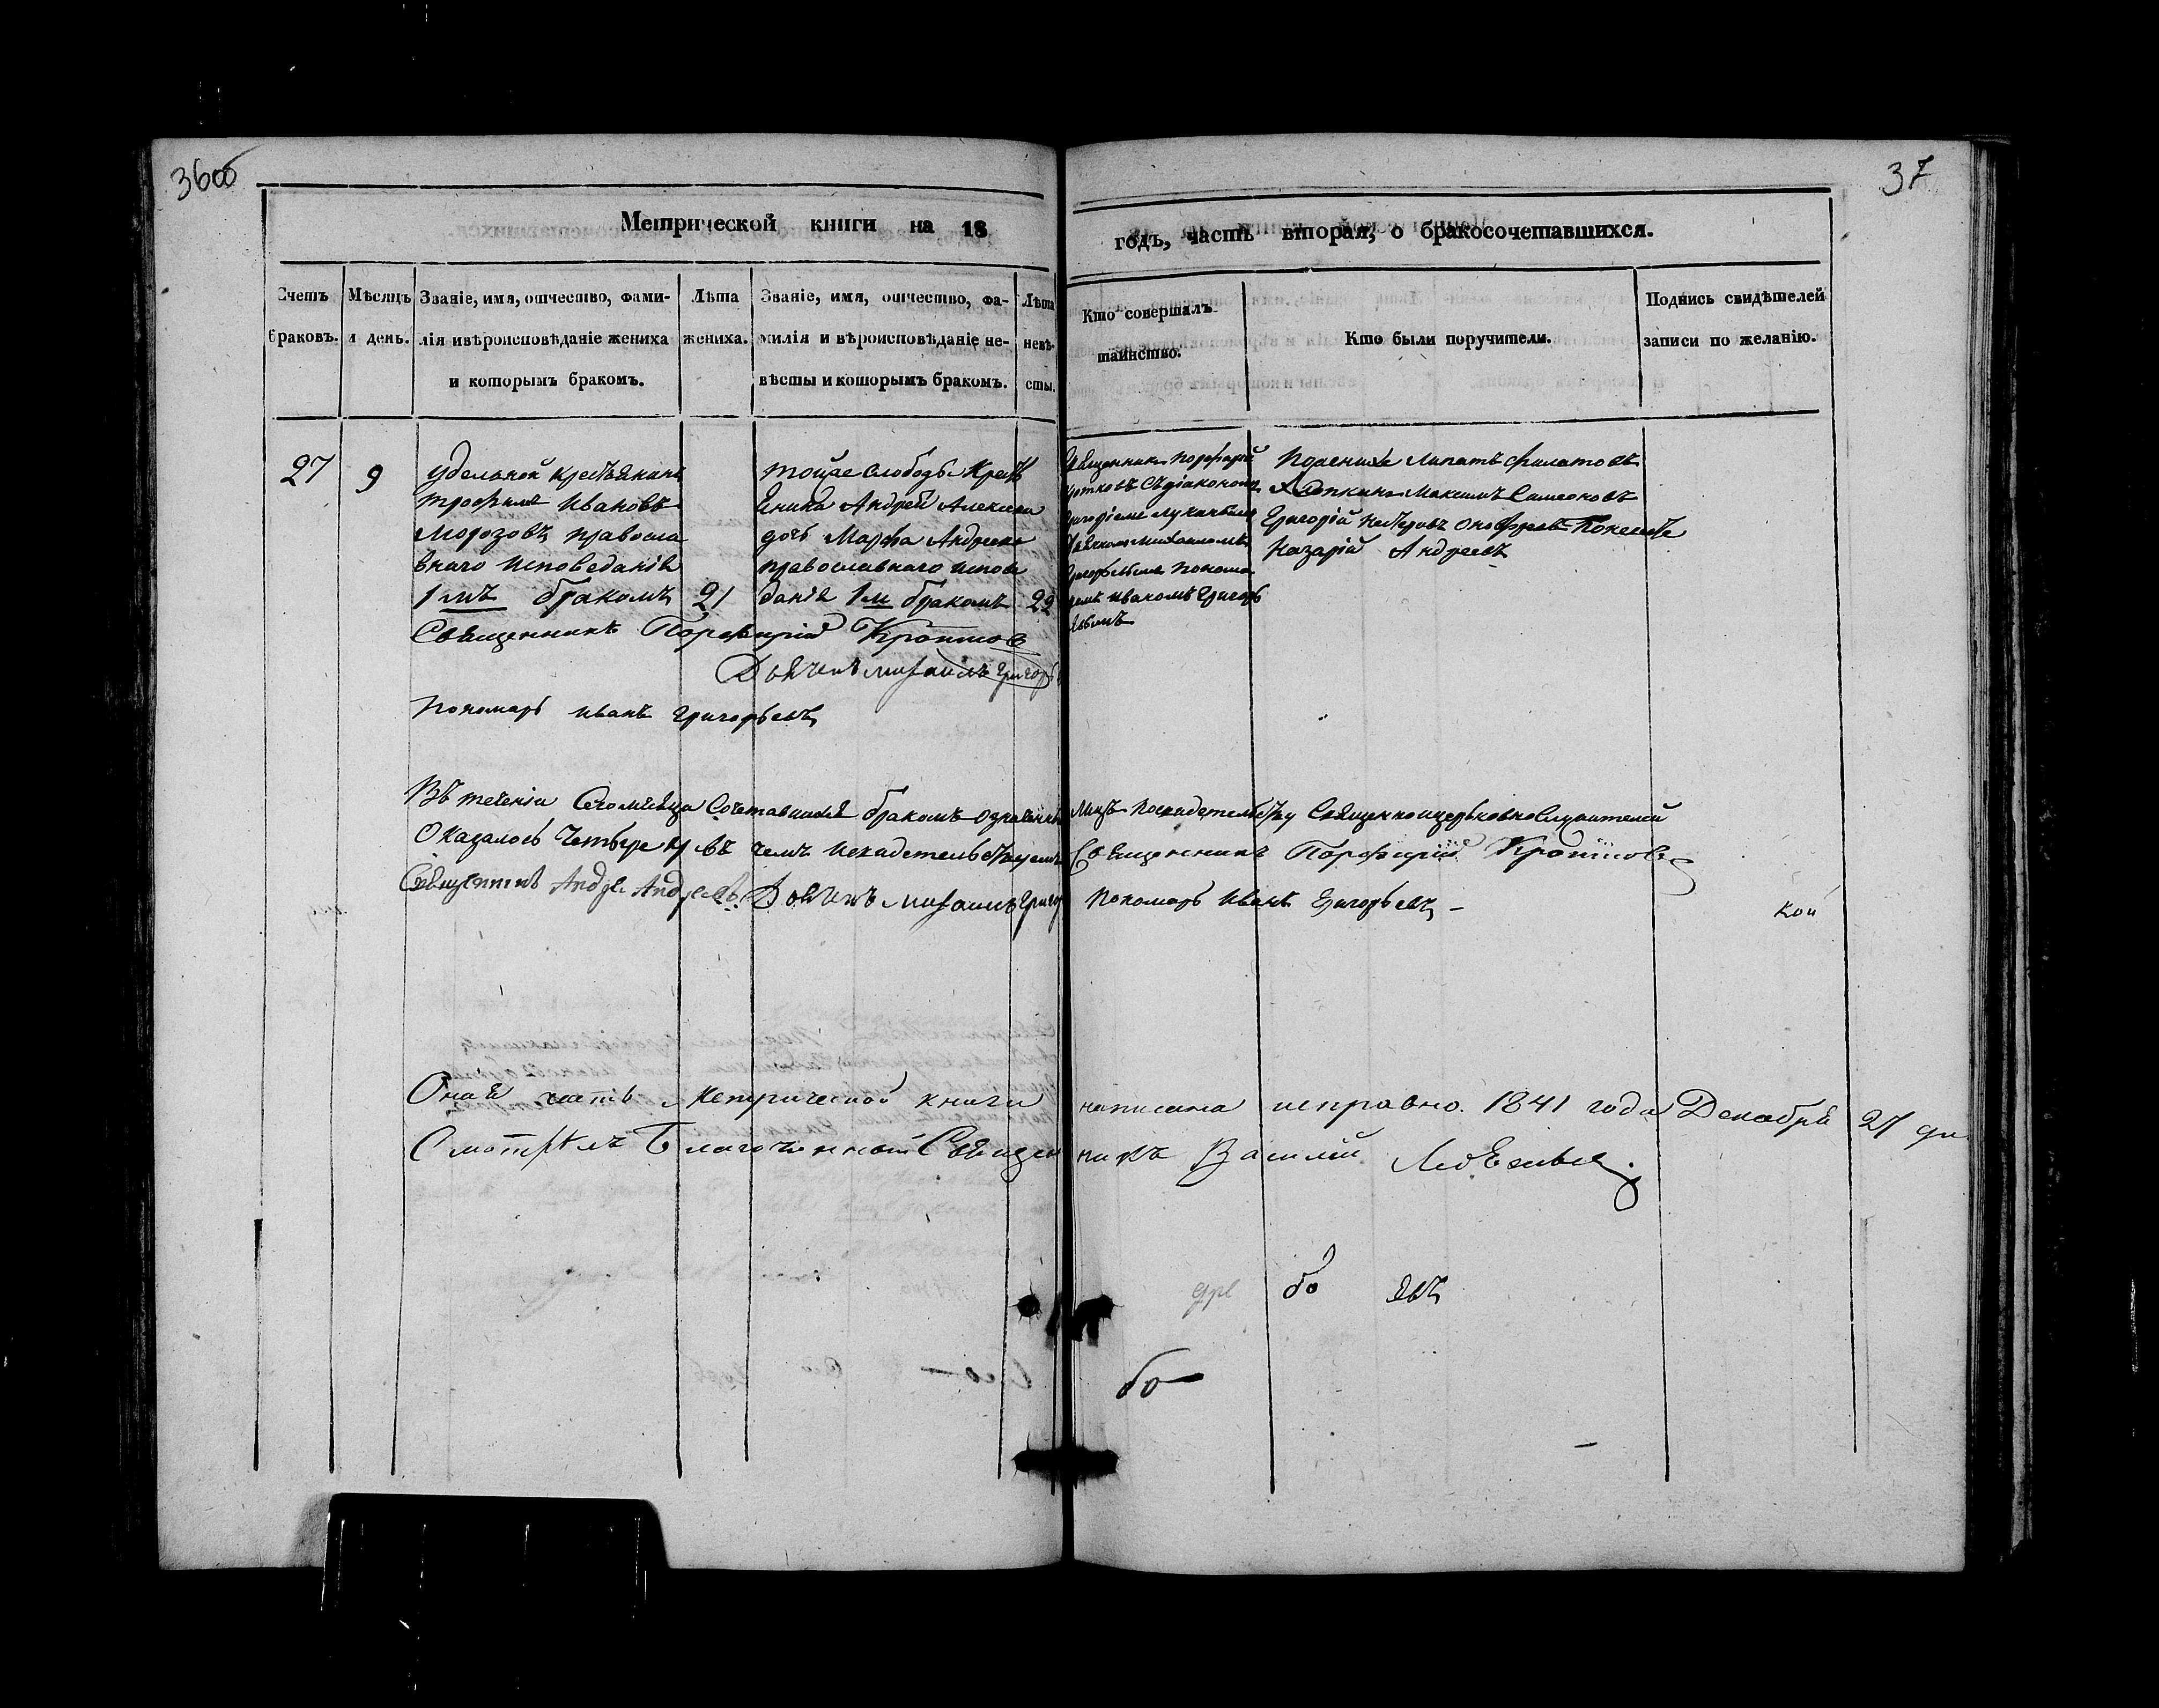 36об
37
Метрической книги на 18
годъ, часть вторая, о бракосочетавшихся.
Счетъ браковъ.
Мѣсяцъ и день.
Званіе, имя, отчество, фами-
лія ивѣроисповѣданіе жениха
и которымъ бракомъ.
Лѣта
жениха.
Званіе, имя, отчество, фа-
милія и вѣроисповѣданіе не-
вѣсты и которымъ бракомъ.
Лѣта
невѣ-
сты.
Кто совершалъ
таинство.
Кто были поручители.
Подпись свидѣтелей
записи по желанію.
27
9
Удельной крестьянинъ
трофимъ Ивановъ
Морозовъ правосла
внаго исповеданія
1мъ бракомъ
21
тойже слободы Крестя
нина Андрей Алексеева
дочь Марфа Андреева
православнаго испове
данія 1м бракомъ
22
Священникъ порфирій
Кротковъ съ діакономъ
Григоріемъ Лукинымъ
Дьячкомъ Михаиломъ
Григорьевымъ понома
ремъ иваномъ Григорь
евымъ
Пожениху Липатъ Филатовъ
Максимъ Симеоновъ
Григорій Поневесте
Назарій Андреевъ
Священникъ Порфирій Кротков
Дьячекъ михаилъ григорь
Пономарь иванъ григорьевъ
Въ теченіи Сегомесяца Сочетавшихся бракомъ означенныхъ Лицъ Священноицерьковнослужителей
Оказалось Четыре въ чемъ исвидетельствуемъ Священникъ Порфирій Кротковъ
Священникъ Андрей Андреевъ Дьячекъ михаилъ григор Пономарь Иванъ Григорьевъ
кои
Оная часть метрической книги написана исправно. 1841 года Декабря 27 дн
Смотрѣлъ Благочинный Священникъ Василій
бо
евъ
бо